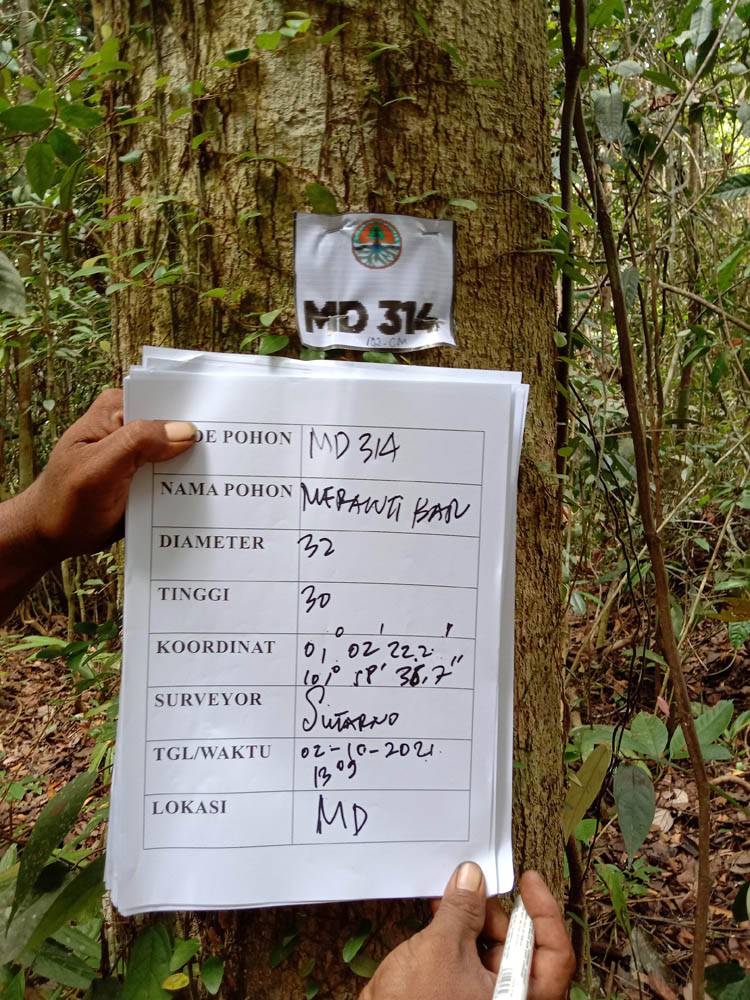 MD 314
102 CM
DE POHON MD 314
NAMA POHON MERANTI BAN
DIAMETER 32
TINGGI 30
KOORDINAT 01° 02' 22.2"
101° 58' 38,7"
SURVEYOR SUTARNO
TGL/WAKTU 02-10-2021
13 09
LOKASI MD